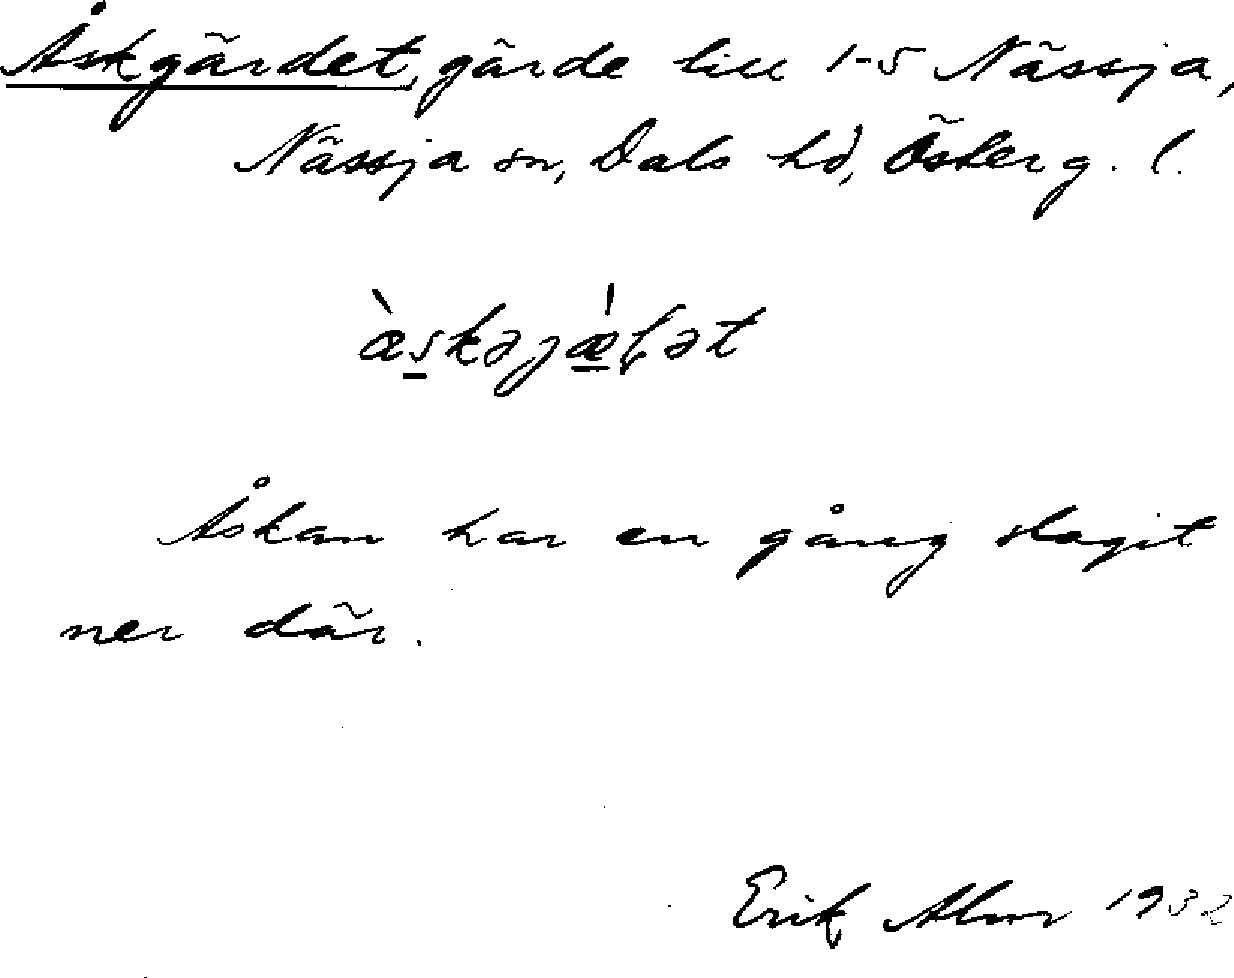 Åskgärdet, gärde till 1-5 Nässja,
Nässja sn, Dals hd, Österg. l.
Åskan har en gång slagit
ner där.
Erik Alm 1932